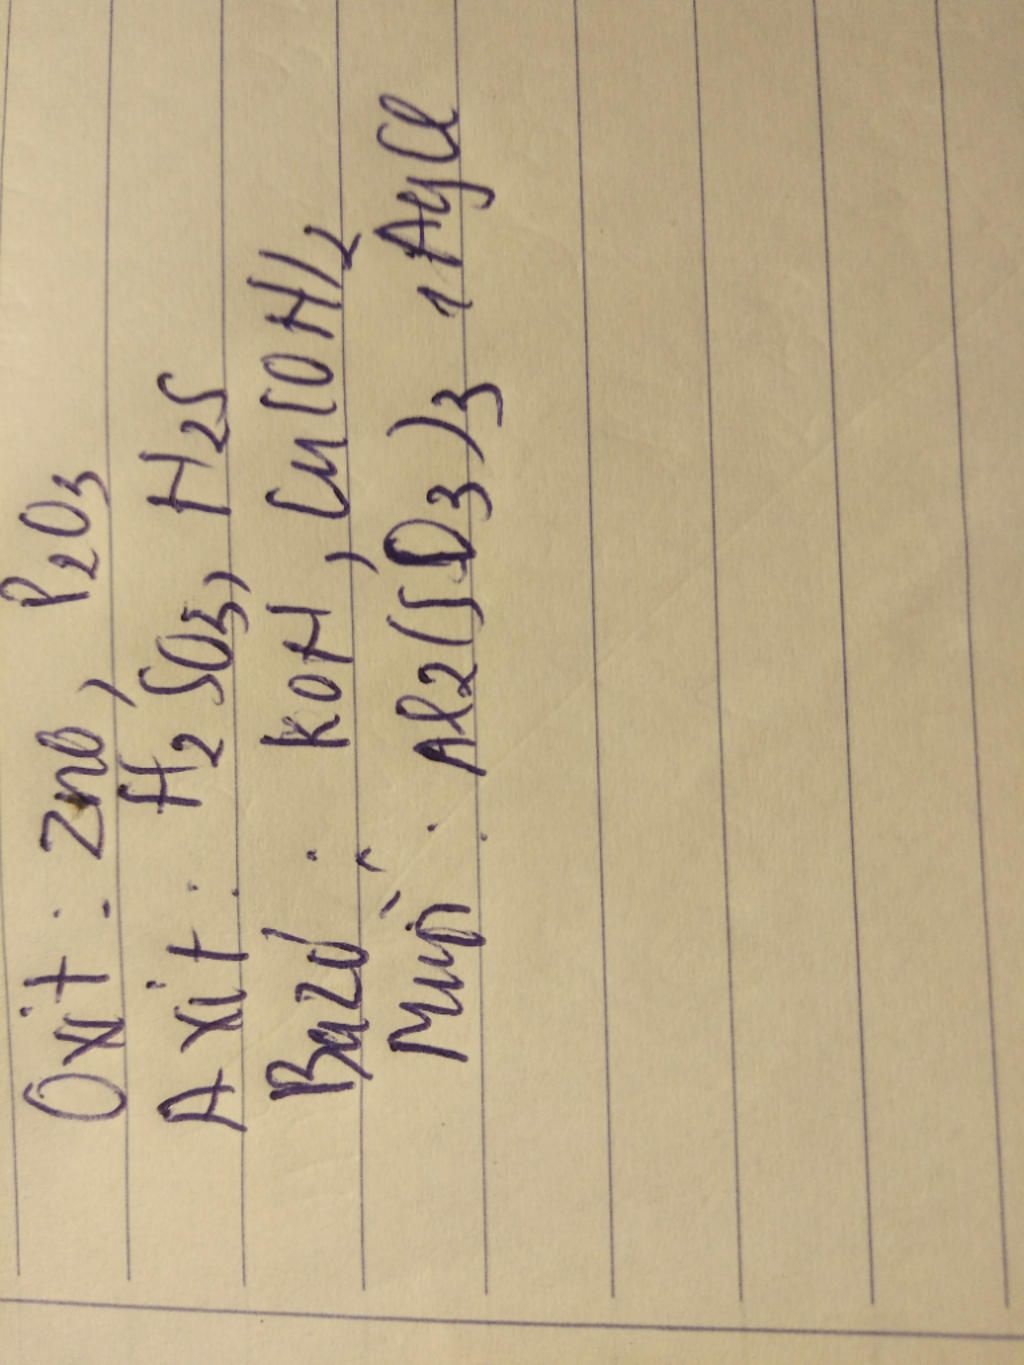 Oxit: ZnO, P₂O₃
Axit: H₂SO₃, H₂S
Bazơ: KOH, Cu(OH)₂
Muối: Al₂(SO₃)₃, AgCl